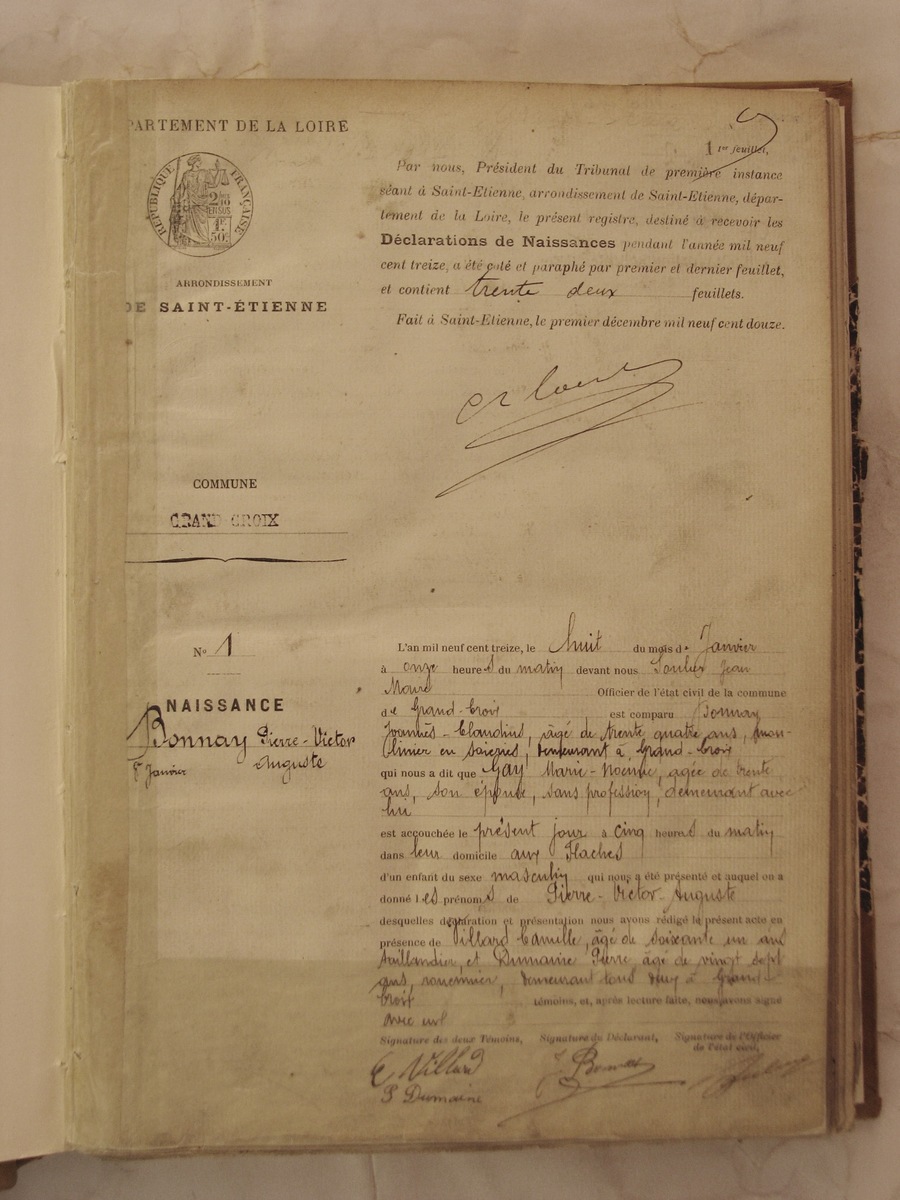 PARTEMENT DE LA LOIRE
RÉPUBLIQUE FRANÇAISE
2/10 EN SUS
1F 50c
ARRONDISSEMENT
DE SAINT-ÉTIENNE
COMMUNE
GRAND-CROIX
1 1er feuillet,
Par nous, Président du Tribunal de première instance
séant à Saint-Etienne, arrondissement de Saint-Etienne, dépar-
tement de la Loire, le présent registre, destiné à recevoir les
Déclarations de Naissances pendant l'année mil neuf
cent treize, a été coté et paraphé par premier et dernier feuillet,
et contient trente deux feuillets.
Fait à Saint-Etienne, le premier décembre mil neuf cent douze.
No 1
NAISSANCE
Bonnay Pierre-Victor
Auguste
Janvier
L'an mil neuf cent treize, le huit du mois de Janvier
à onze heures du matin devant nous Jean
Officier de l'état civil de la commune
de Grand-Croix est comparu Bonnay
Joannès-Claudius, âgé de trente quatre ans, mou-
linier en soieries, demeurant à Grand-Croix
qui nous a dit que Gay Marie-Noémie, agée de trente
ans, son épouse, sans profession, demeurant avec
lui
est accouchée le présent jour à cinq heures du matin
dans leur domicile aux Flaches
d'un enfant du sexe masculin qui nous a été présenté et auquel on a
donné les prénoms de Pierre-Victor-Auguste
desquelles déclaration et présentation nous avons rédigé le présent acte en
présence de Villard Camille, âgé de soixante un ans
taillandier, et Dumaine Pierre âgé de vingt sept
ans, demeurant tous deux à Grand-
Croix témoins, et, après lecture faite, nous avons signé
avec eux
Signature des deux Témoins, Signature du Déclarant, Signature de l'Officier
de l'état civil,
C Villard
P Dumaine
J Bonnay